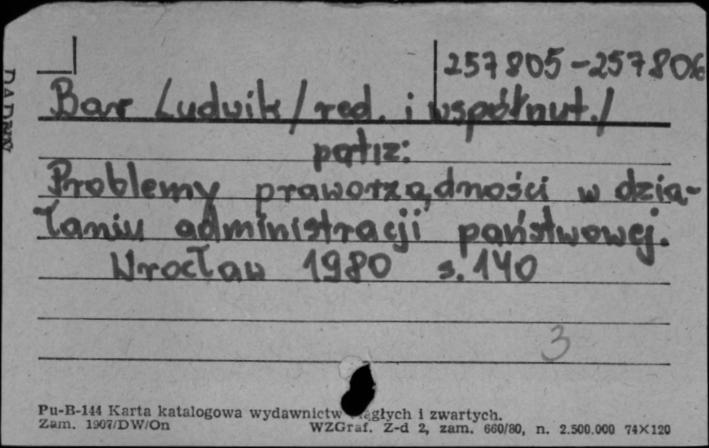 257805-257806
Bar Ludwik/red. i współaut./
patrz:
Problemy praworządności w dzia-
łaniu administracji państwowej.
Wrocław 1980 s. 140
3
Pu-B-144 Karta katalogowa wydawnictw i zwartych.
Zam. 1907/DW/On WZGraf. Z-d 2, zam. 660/80, n. 2.500.000 74×120